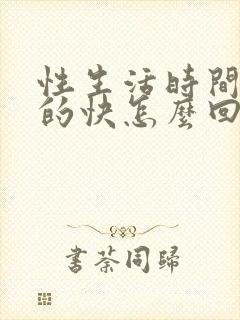 性生活時間
的快怎麼回
書荼同歸